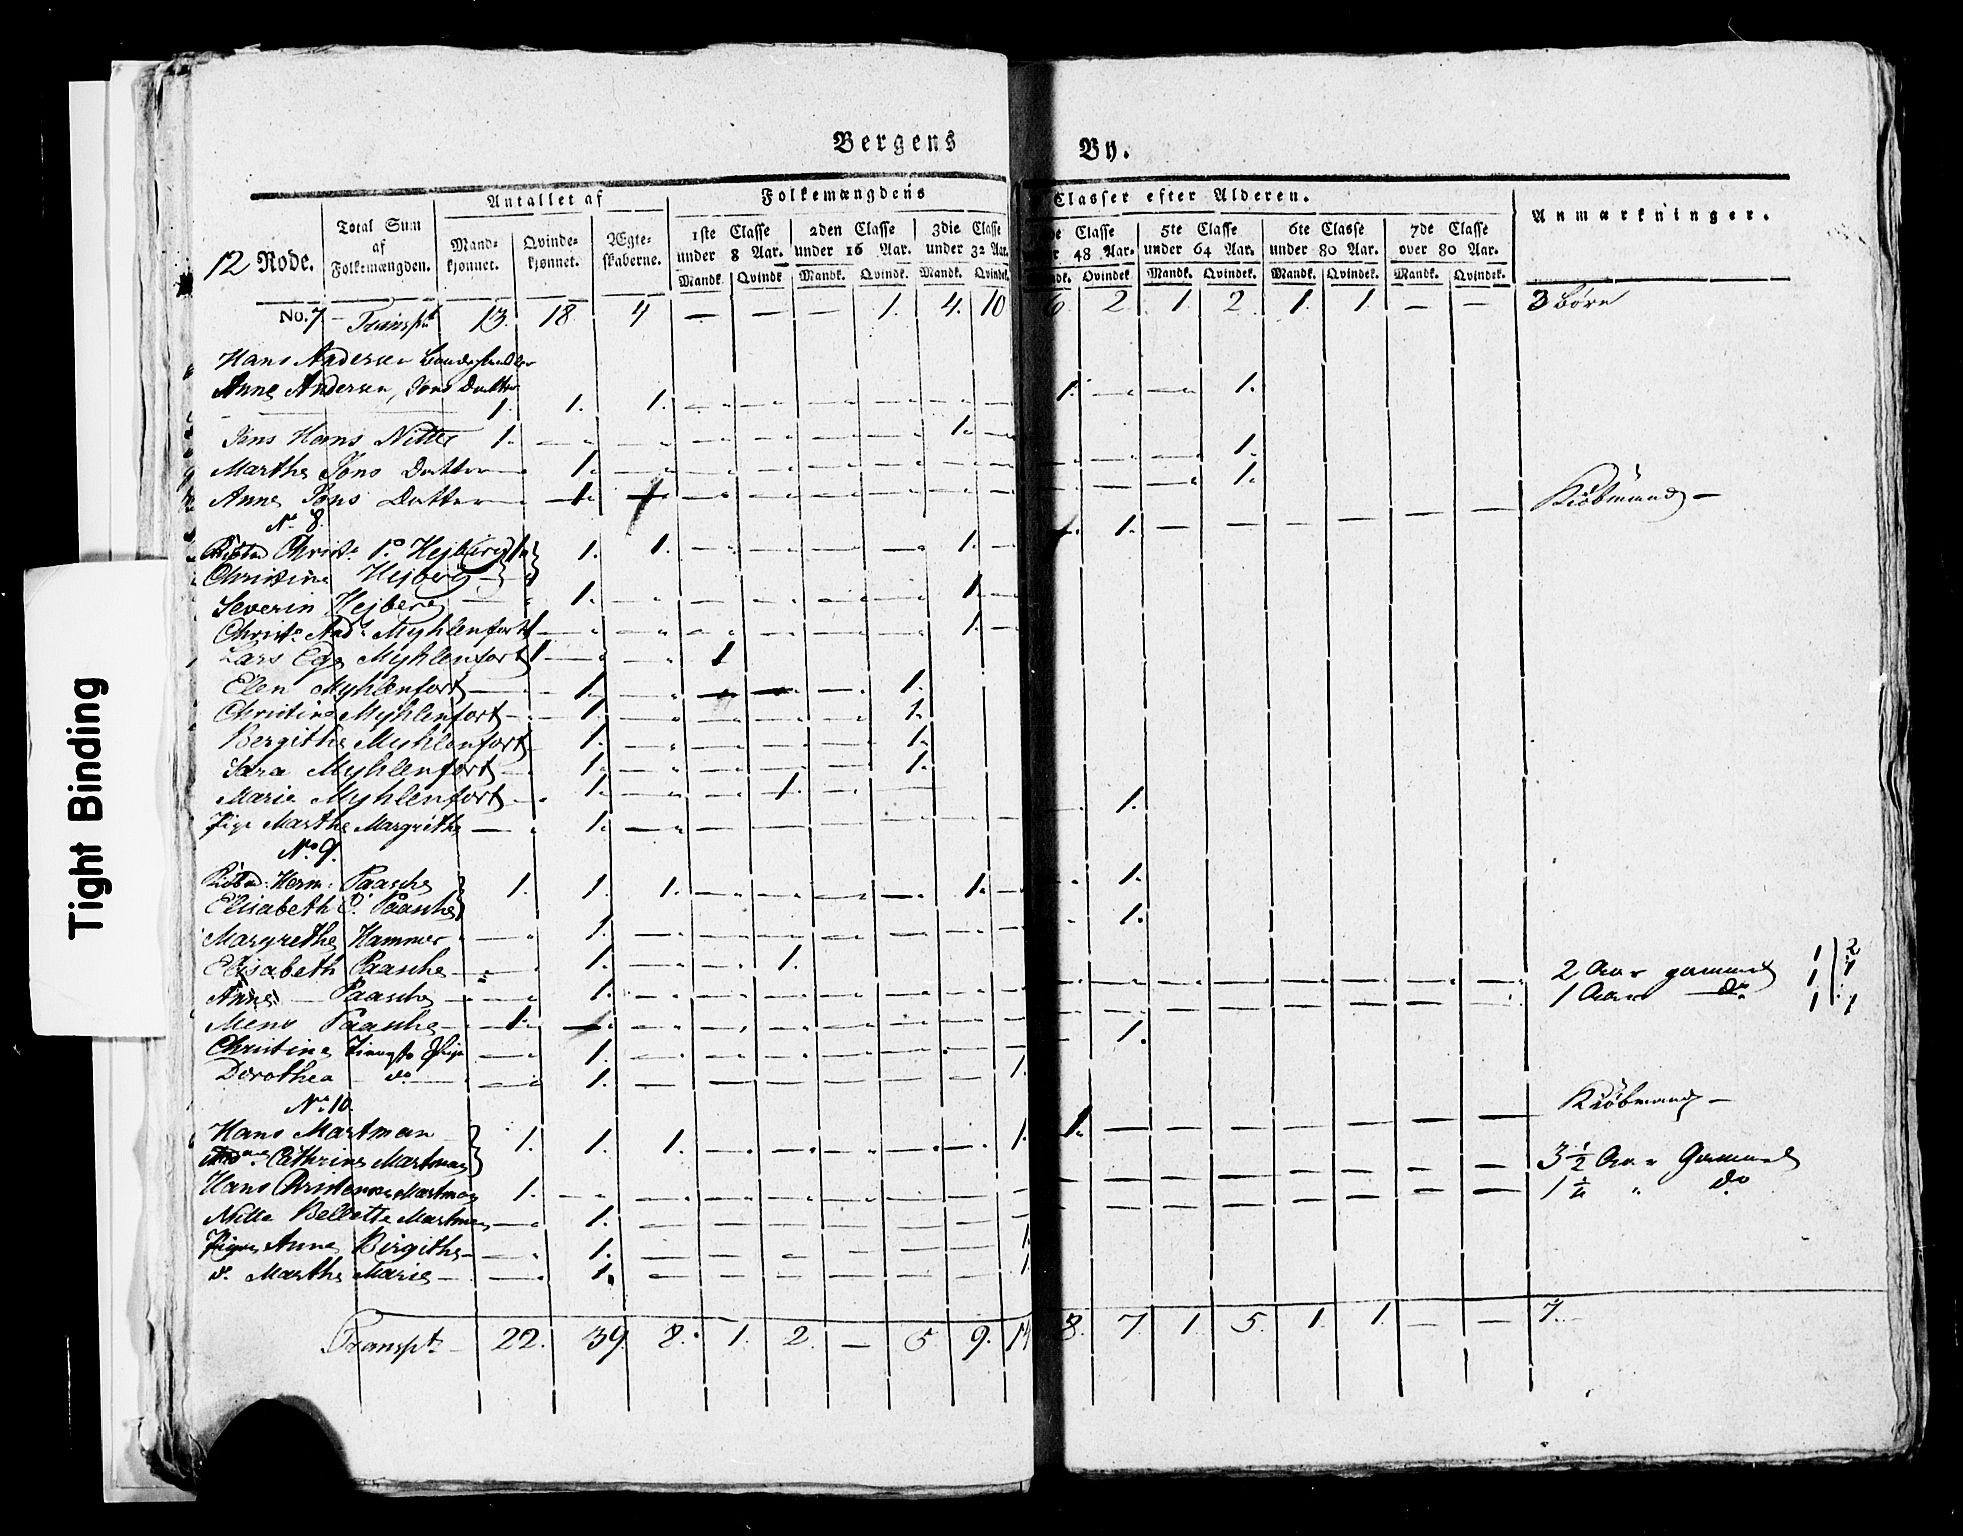 Tight Binding
Bergens By.
12 Rode.
Total Sum af Folkemængden.
Antallet af
Mandkjønnet.
Qvindekjønnet.
Ægteskaberne.
Folkemængdens Classer efter Alderen.
1ste Classe under 8 Aar.
2den Classe under 16 Aar.
3die Classe under 32 Aar.
Classe 48 Aar.
5te Classe under 64 Aar.
6te Classe under 80 Aar.
7de Classe over 80 Aar.
Mandk. Qvindk. Mandk. Qvindk. Mandk. Qvindek. Qvindek. Mandk. Qvindek. Mandk. Qvindek. Mandk. Qvindek.
Anmærkninger.
No. 7 - Transpt 13. 18. 4 — — — 1. 4. 10 6 2 1. 2. 1. 1. — — 3 Børn
Hans Andersen
Anne Andersen, Jons Datter 1. 1. 1. — — — — — — 1. — — 1.
Jens Hans Nitter 1. — — — — — — 1. —
Marthe Jons Datter — 1. — — — — — — — 1.
Anne Jons Datter — 1. — — — — — — — 1.
No 8.
Christ. Hejberg 1. 1. — — — — 1. 1. — — — — — — Kiøbmand —
Christine Hejberg
Severin Hejberg — 1. — — — — — 1.
Christ. And. Myhlenfort 1 — — — — — — 1.
Lars Ege Myhlenfort 1 — — 1
Elen Myhlenfort — 1. — — — — 1.
Christine Myhlenfort — 1. — — — — 1.
Bergithe Myhlenfort — 1. — — — — 1.
Sara Myhlenfort — 1. — — — — 1.
Marie Myhlenfort — 1. — — 1. — —
Pige Marthe Margrethe — 1. — — — — — 1.
No 9.
Herm: Paasche 1. 1. 1. — — — — 1. 1.
Elisabeth C. Paasche
Margrethe Hammer — 1. — — — — — — 1.
Elisabeth Paasche — 1. — — 1.
Anne — Paasche — 1. — — — — — — — — — — — — — — 2 Aar gammel 1 2
Mens Paasche — 1. — — — — — — — — — — — — — — 1 Aar — do 1 1
Christine Pige — 1. — — — — — — 1.
Dorothea — do — 1. — — — — — 1.
No 10.
Hans Martman 1. 1. 1. — — — — — 1. 1. — — — — — — Kiøbmand —
Cathrine Martman
Hans Martman 1. — — — — — — — — — — — — — — 3 1/2 Aar Gammel
Nille Martman — 1. — — — — — — — — — — — — — " do
Anne Birgithe — 1. — — — — — — 1.
d. Marthe Marie — 1. — — — — — — 1.
Transpt. — 22. 39. 8. 1. 2. — 5 9. 14 8. 7. 1. 5. 1. 1. — — 7.